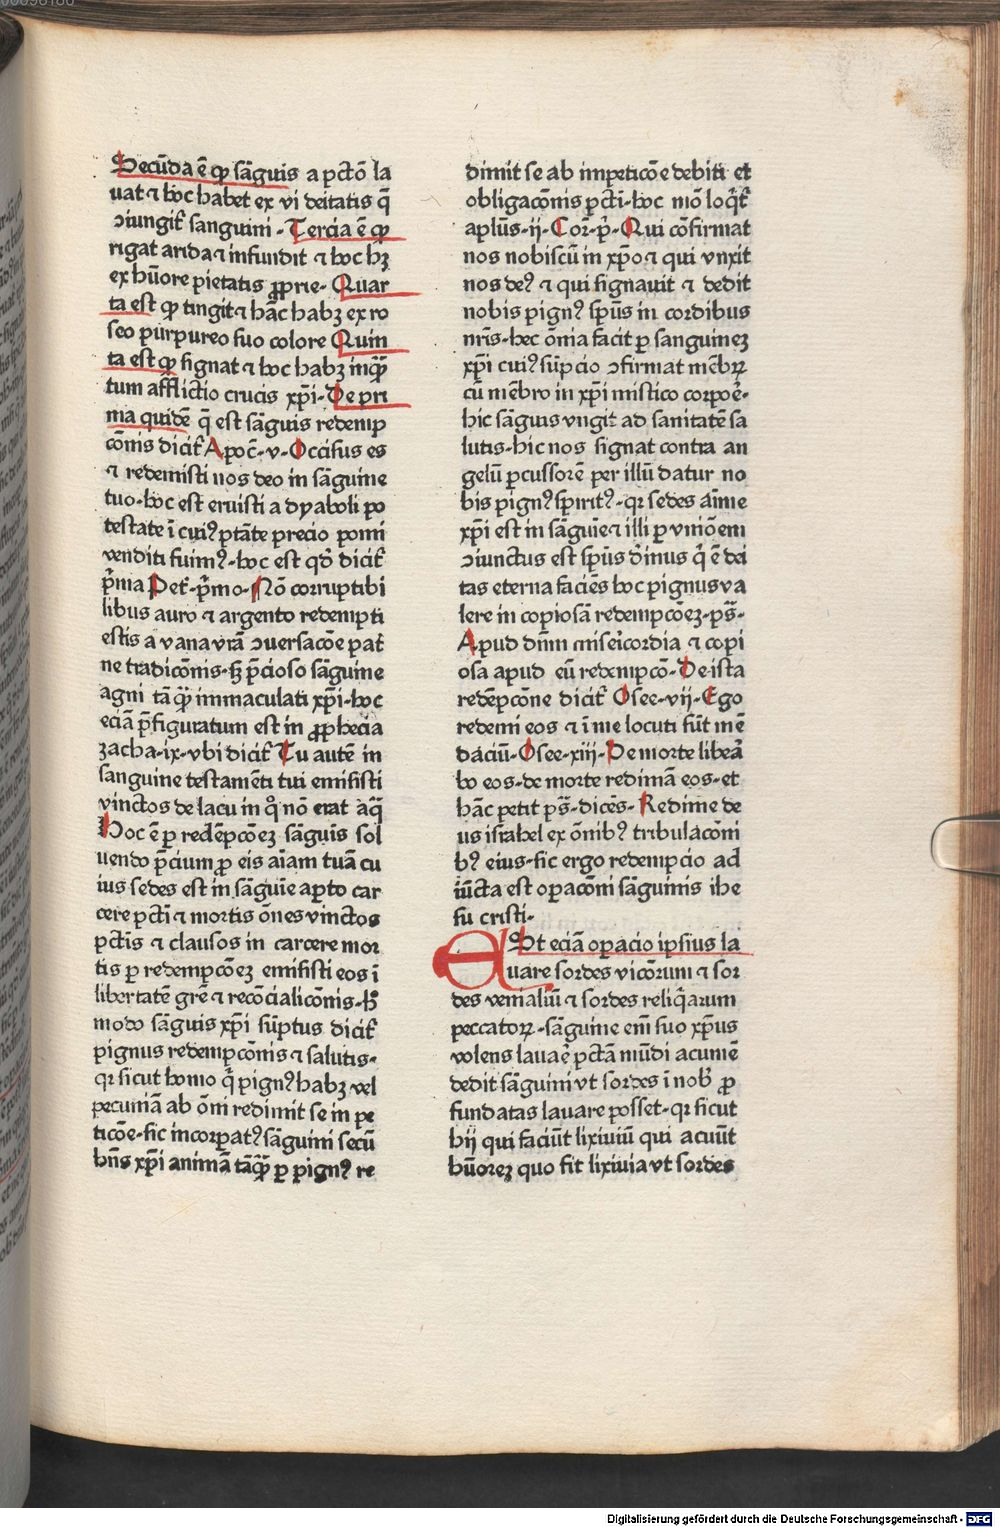 Secūda ē ꝙ sāguis a pctō la
uat ⁊ hoc habet ex vi deitatis q̄
ↄiungit᷑ sanguini · Tercia ē ꝙ
rigat arida ⁊ infundit ⁊ hoc hꝫ
ex hūore pietatis ꝓprie · Quar
ta est ꝙ tingit ⁊ hāc habꝫ ex ro
seo purpureo suo colore Quin
ta est ꝙ signat ⁊ hoc habꝫ inq̄ꝫ
tum afflictio crucis xp̄i · De pri
ma quidē q̄ est sāguis redemp
cōnis dicit᷑ Apoc̄ · v · Occisus es
⁊ redemisti nos deo in sāguine
tuo · hoc est eruisti a dyaboli po
testate ī cui⁹ ptāte precio pomi
venditi fuim⁹ · hoc est qd̄ dicit᷑
p̄ma Pet᷑ · p̄mo · Nō corruptibi
libus auro ⁊ argento redempti
estis a vana vrā ↄuersacōe pat᷑
ne tradicōnis · sꝫ p̄cioso sāguine
agni tāꝙ̄ immaculati xp̄i · hoc
eciā p̄figuratum est in ꝓphecia
zacha · ix · vbi dicit᷑ Tu autē in
sanguine testamēti tui emisisti
vinctos de lacu in q̊ nō erat aq̄
Hoc ē ꝑ redēpcōeꝫ sāguis sol
uendo p̄cium ꝓ eis aīam tuā cu
ius sedes est in sāguīe aꝑto car
cere pcti ⁊ mortis ōnes vinctos
pctīs ⁊ clausos in carcere mor
tis ꝑ redempcōeꝫ emisisti eos ī
libertatē grē ⁊ recōcialicōnis · h̄
modo sāguis xp̄i sūptus dicit᷑
pignus redempcōnis ⁊ salutis ·
qꝛ sicut homo q̄ pign⁹ habꝫ vel
pecuniā ab ōni redimit se in pe
ticōe · sic incorꝑat⁹ sāguini secū
hn̄s xp̄i animā tāꝙ̄ ꝑ pign⁹ re
dimit se ab impeticōe debiti et
obligacōnis pcti · hoc mō loq̄t᷑
aplūs · ii · Cor̄ · p̄ · Qui cōfirmat
nos nobiscū in xp̄o ⁊ qui vnxit
nos de⁹ ⁊ qui signauit ⁊ dedit
nobis pign⁹ sp̄us in cordibus
nr̄is · hec ōnia facit ꝑ sanguineꝫ
xp̄i cui⁹ sūpcio ↄfirmat mēbꝝ
cū mēbro in xp̄i mistico corꝑoē ·
hic sāguis vngit ad sanitatē sa
lutis · hic nos signat contra an
gelū ꝑcussorē per illū datur no
bis pign⁹ spirit⁹ · qꝛ sedes aīme
xp̄i est in sāguīe ⁊ illi ꝑ vniōem
ↄiunctus est sp̄us dīnus q̄ ē dei
tas eterna faciēs hoc pignus va
lere in copiosā redempcōeꝫ · ps̄ ·
Apud dn̄m misei̇cordia ⁊ copi
osa apud eū redempcō · De ista
redēpcōne dicit᷑ Osee · vij · Ego
redemi eos ⁊ ī me locuti sūt mē
daciū · Osee · xiij · De morte libea᷑
bo eos · de morte redimā eos · et
hāc petit ps̄ · dicēs · Redime de
us israhel ex ōnib⁹ tribulacōni
b⁹ eius · sic ergo redempcio ad
iūcta est oꝑacōni sāguinis ihe
su cristi ·
ESt eciā oꝑacio ipsius la
uare sordes viciorum ⁊ sor
des venialiū ⁊ sordes reliq̄arum
peccatoꝝ · sāguine em̄ suo xp̄us
volens lauae᷑ pctā mūdi acumē
dedit sāguini vt sordes ī nob̄ ꝓ
fundatas lauare posset · qꝛ sicut
hij qui faciūt lixiuiū qui acuūt
hūoreꝫ quo fit lixiuia vt sordes
Digitalisierung gefördert durch die Deutsche Forschungsgemeinschaft - DFG